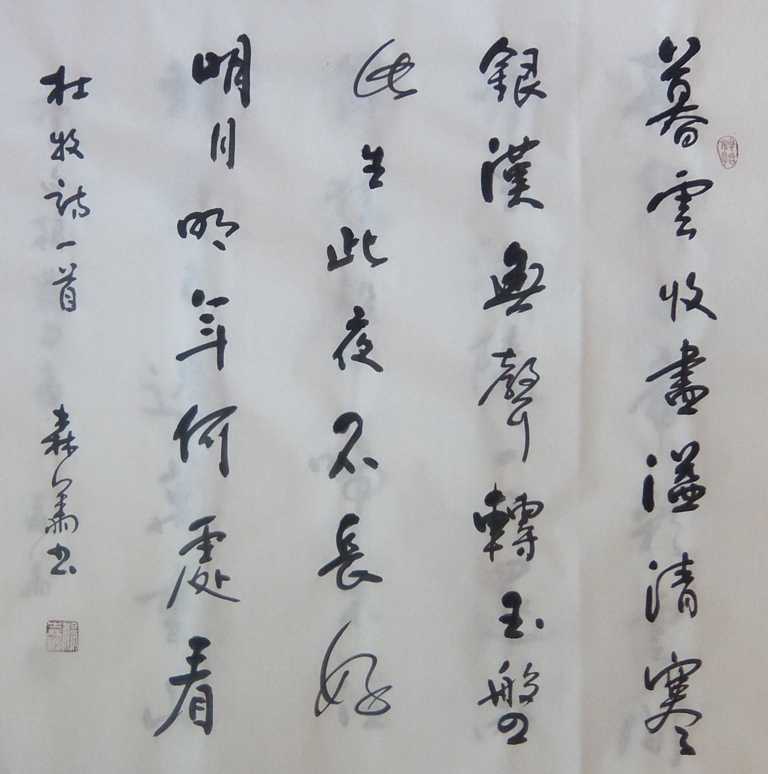 暮雲收盡溢清寒
銀漢無聲轉玉盤
此生此夜不長好
明月明年何處看
杜牧詩一首
森 書